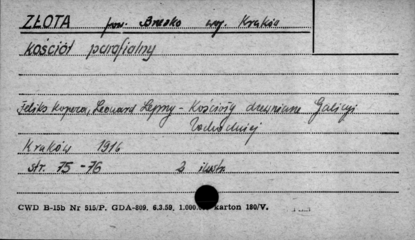 ZŁOTA pow. Brzesko woj. Kraków
Kościół parafialny
Feliks Kopera, Leonard Lepszy - Kościoły drewniane Galicyi
Zachodniej
Kraków 1916
str. 75 - 76 2 ilustr.
CWD B-15b Nr 515/P. GDA-809. 6.3.59, 1.000. karton 180/V.